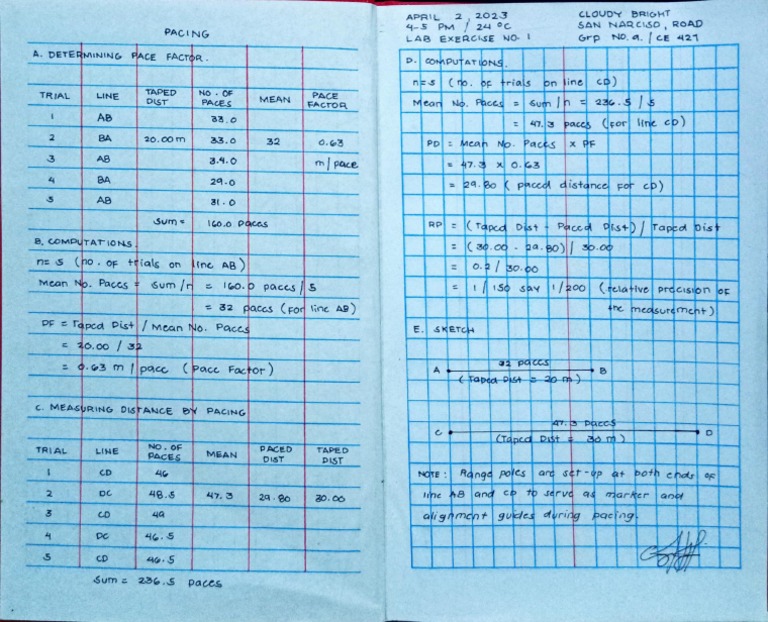 PACING
A. DETERMINING PACE FACTOR.
TRIAL LINE TAPED DIST NO. OF PACES MEAN PACE FACTOR
1 AB 33.0
2 BA 20.00 m 33.0 32 0.63
3 AB 34.0 m/pace
4 BA 29.0
5 AB 31.0
Sum = 160.0 paces
B. COMPUTATIONS.
n= 5 (no. of trials on line AB)
Mean No. Paces = Sum/n = 160.0 paces/5
= 32 paces (for line AB)
PF = Taped Dist / Mean No. Paces
= 20.00 / 32
= 0.63 m / pace (Pace Factor)
C. MEASURING DISTANCE BY PACING
TRIAL LINE NO. OF PACES MEAN PACED DIST TAPED DIST
1 CD 46
2 DC 48.5 47.3 29.80 30.00
3 CD 49
4 DC 46.5
5 CD 46.5
Sum = 236.5 paces
APRIL 2, 2023 CLOUDY BRIGHT
4-5 PM / 24°C SAN NARCISO, ROAD
LAB EXERCISE NO. 1 Grp NO. 9. / CE 421
D. COMPUTATIONS.
n=5 (no. of trials on line CD)
Mean No. Paces = Sum/n = 236.5/5
= 47.3 paces (for line CD)
PD = Mean No. Paces x PF
= 47.3 x 0.63
= 29.80 (paced distance for CD)
RP = (Taped Dist - Paced Dist) / Taped Dist
= (30.00 - 29.80)/ 30.00
= 0.2 / 30.00
= 1 / 150 say 1/200 (relative precision of
the measurement)
E. SKETCH
32 paces
A B
(Taped Dist = 20 m)
47.3 paces
C D
(Taped Dist = 30 m)
NOTE: Range poles are set-up at both ends of
line AB and CD to serve as marker and
alignment guides during pacing.